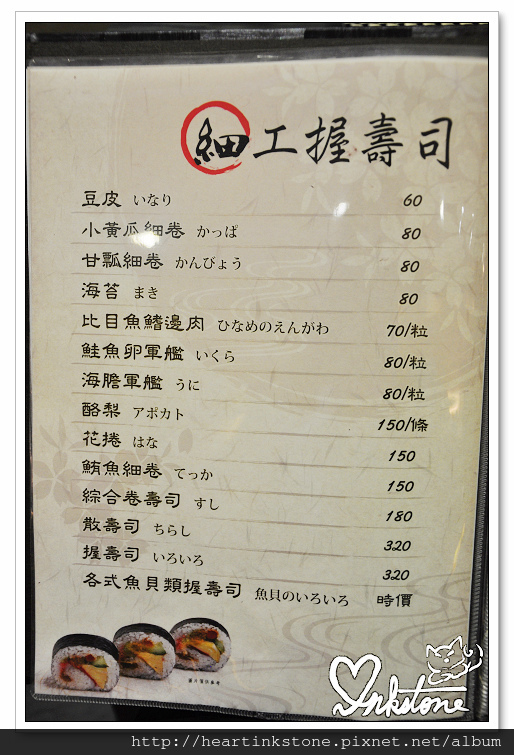 細工握壽司
豆皮 いなり 60
小黃瓜細卷 かっぱ 80
甘瓢細卷 かんぴょう 80
海苔 まき 80
比目魚鰭邊肉 ひなめのえんがわ 70/粒
鮭魚卵軍艦 いくら 80/粒
海膽軍艦 うに 80/粒
酪梨 アポカト 150/條
花捲 はな 150
鮪魚細卷 てっか 150
綜合卷壽司 すし 180
散壽司 ちらし 320
握壽司 いろいろ 320
各式魚貝類握壽司 魚貝のいろいろ 時價
圖片僅供參考
Inkstone
http://heartinkstone.pixnet.net/album